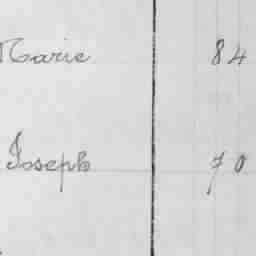 Marie 84
Joseph 70